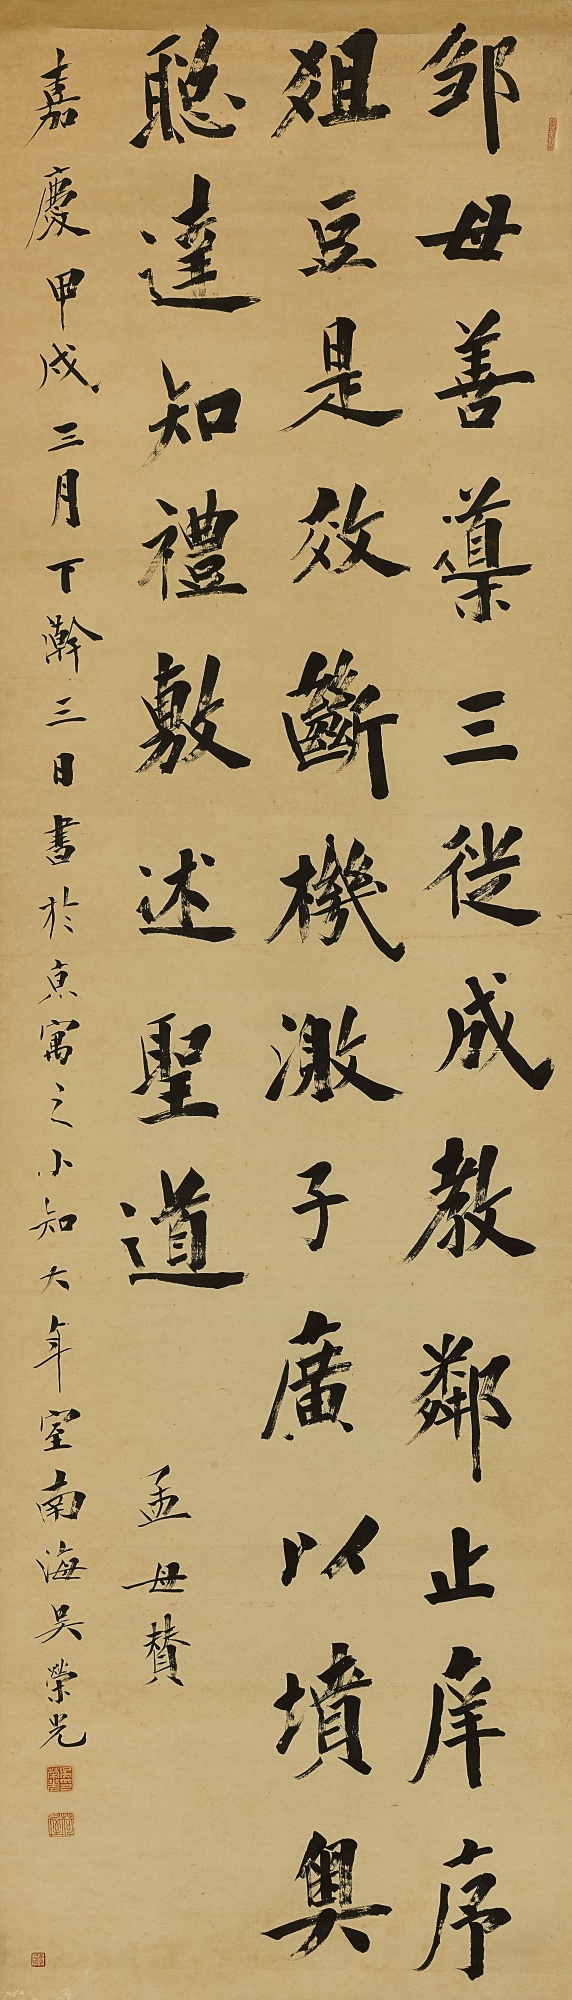 邹母善導三從成教鄰止庠序
俎豆是效斷機激子廣以墳奧
聡達知禮敷述聖道
孟母賛
嘉慶甲戌三月下澣三日書於京寓之小知大年室南海吳榮光